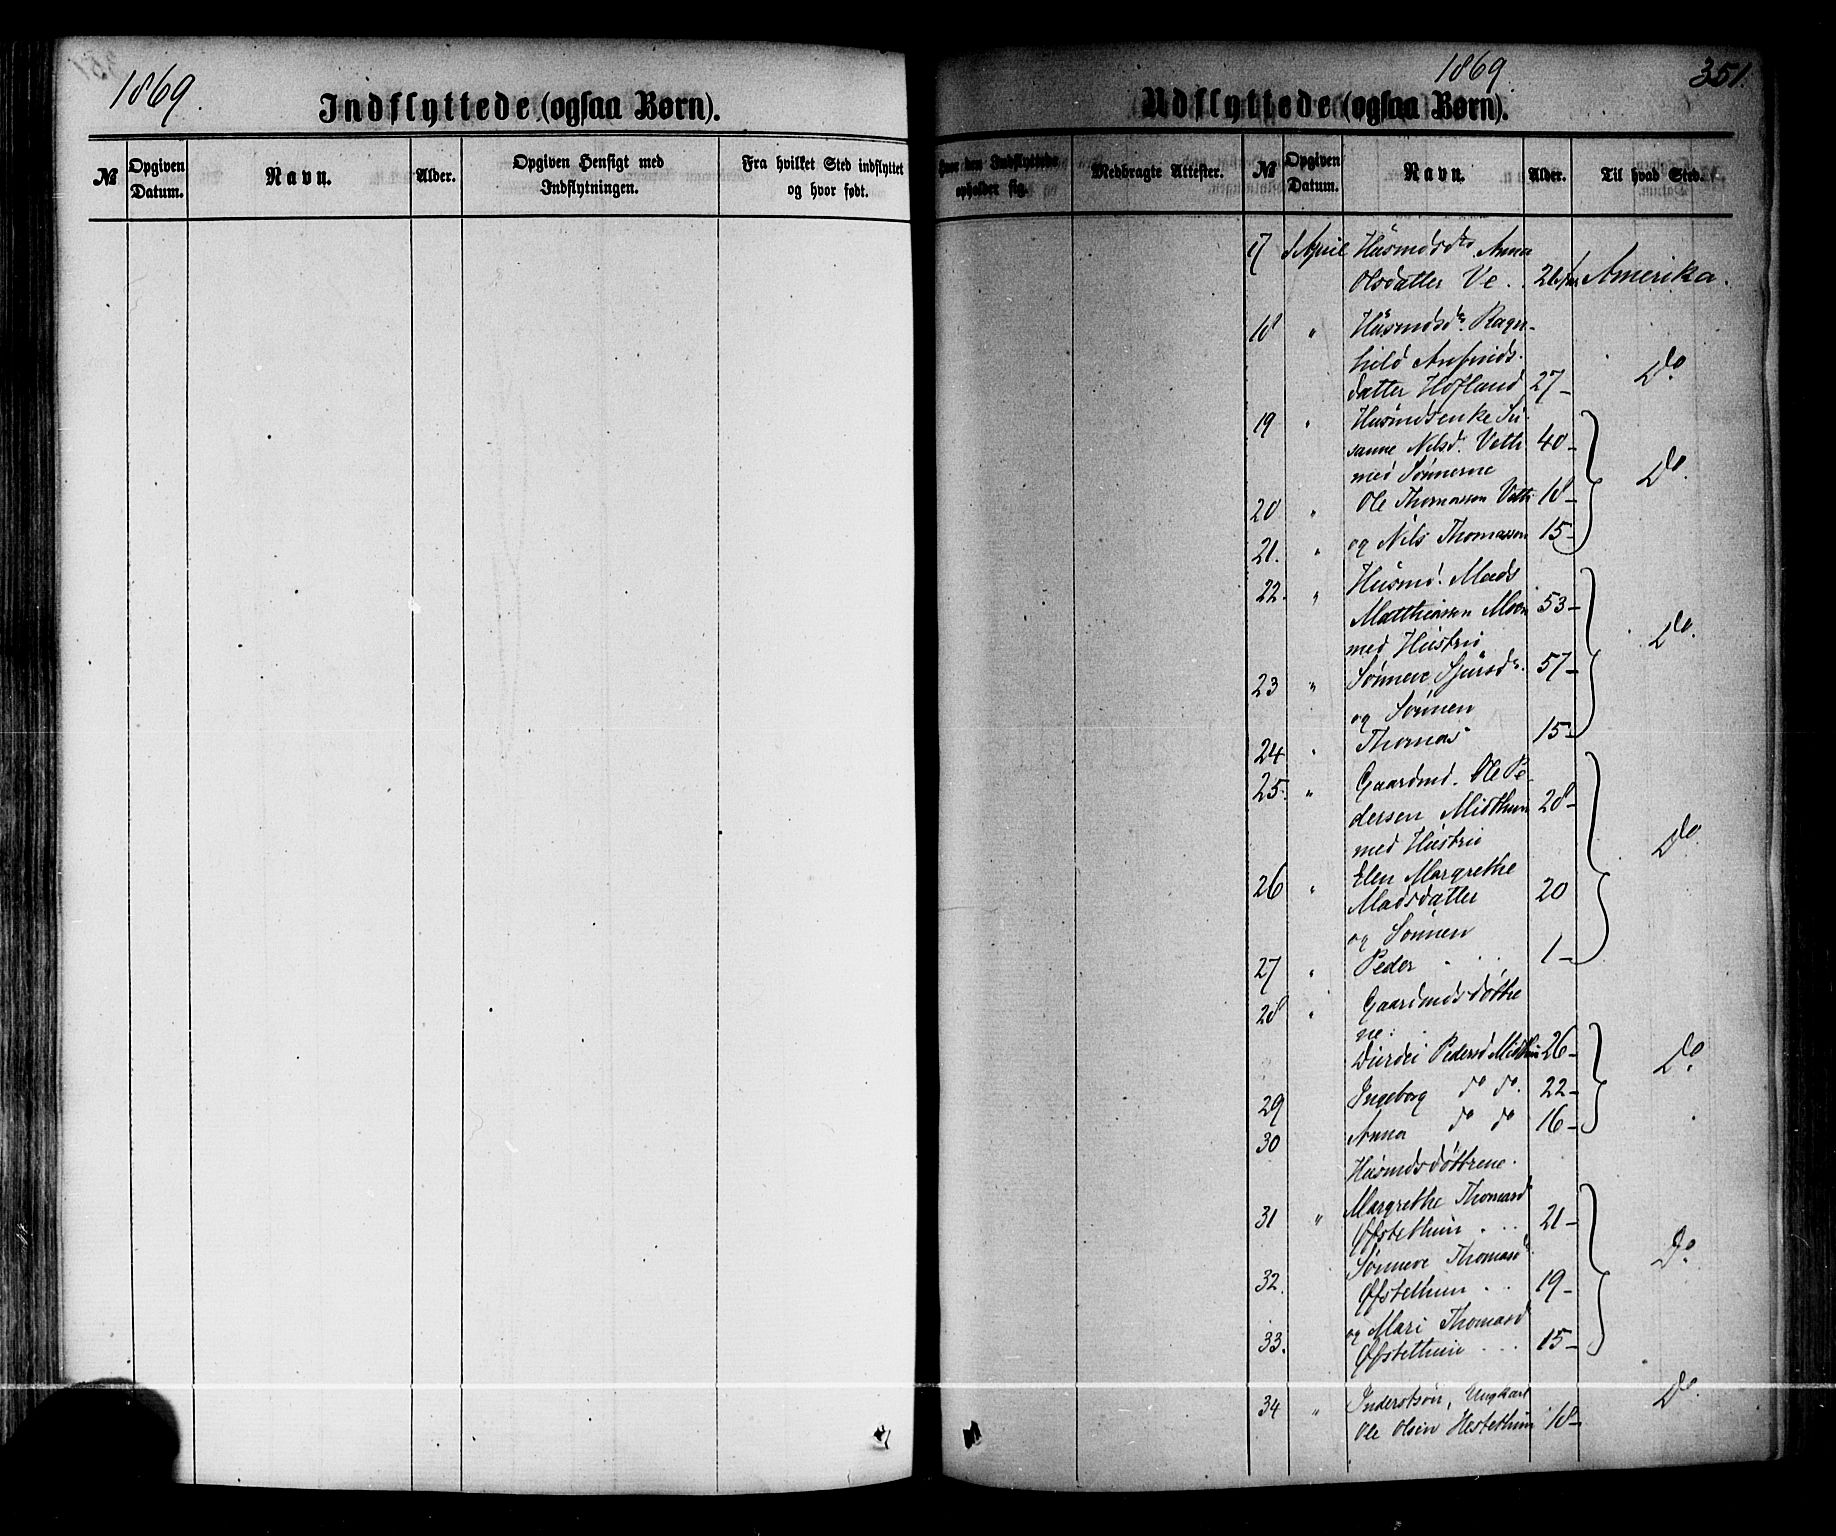 1869.
Indflyttede (ogsaa Børn).
№ Opgiven Datum. Navn. Alder. Opgiven Hensigt med Indflytningen. Fra hvilket Sted indflyttet og hvor født.
1869. 351.
Udflyttede (ogsaa Børn).
Hvor den Indflyttede opholder sig. Medbragte Attester. № Opgiven Datum. Navn. Alder. Til hvad Sted.
17 8 April Husmdsdtr Anna
Olsdatter Ve. 26 Aar Amerika.
18 " Husmdsdr. Ragn-
hild Anfinds-
datter Hofland 27 - Do
19 " Husmdsenke Su-
sanne Nilsd. Vetti 40 -
med Sønnerne Do.
20 " Ole Thomassen Vetti 18 -
21. " og Nils Thomassen 15 -
22. " Husmd. Mads
Matthiassen Moen 53 -
med Hustru Do.
23 " Sønneve Sjursdr. 57 -
og Sønnen
24 " Thomas 15 -
25. " Gaardmd. Ole Pe-
dersen Midthun 28 -
med Hustru Do.
26 " Elen Margrethe
Madsdatter 20
og Sønnen
27 " Peder 1 -
28 " Gaardmdsdøttre
ne:
Durdei Pedersd Midthun 26 - Do
29 Ingeborg do do. 22 -
30 Anna do do 16 -
Husmdsdøttrene.
31 " Margrethe Thomasd
Øfstethun . .. 21 -
32. Sønneve Thomasd Do
Øfstethun . .. 19 -
33. og Mari Thomasd
Øfstethun . .. 15 -
34 " Inderstsøn, Ungkarl Do.
Ole Olsen Hestethun 18 -